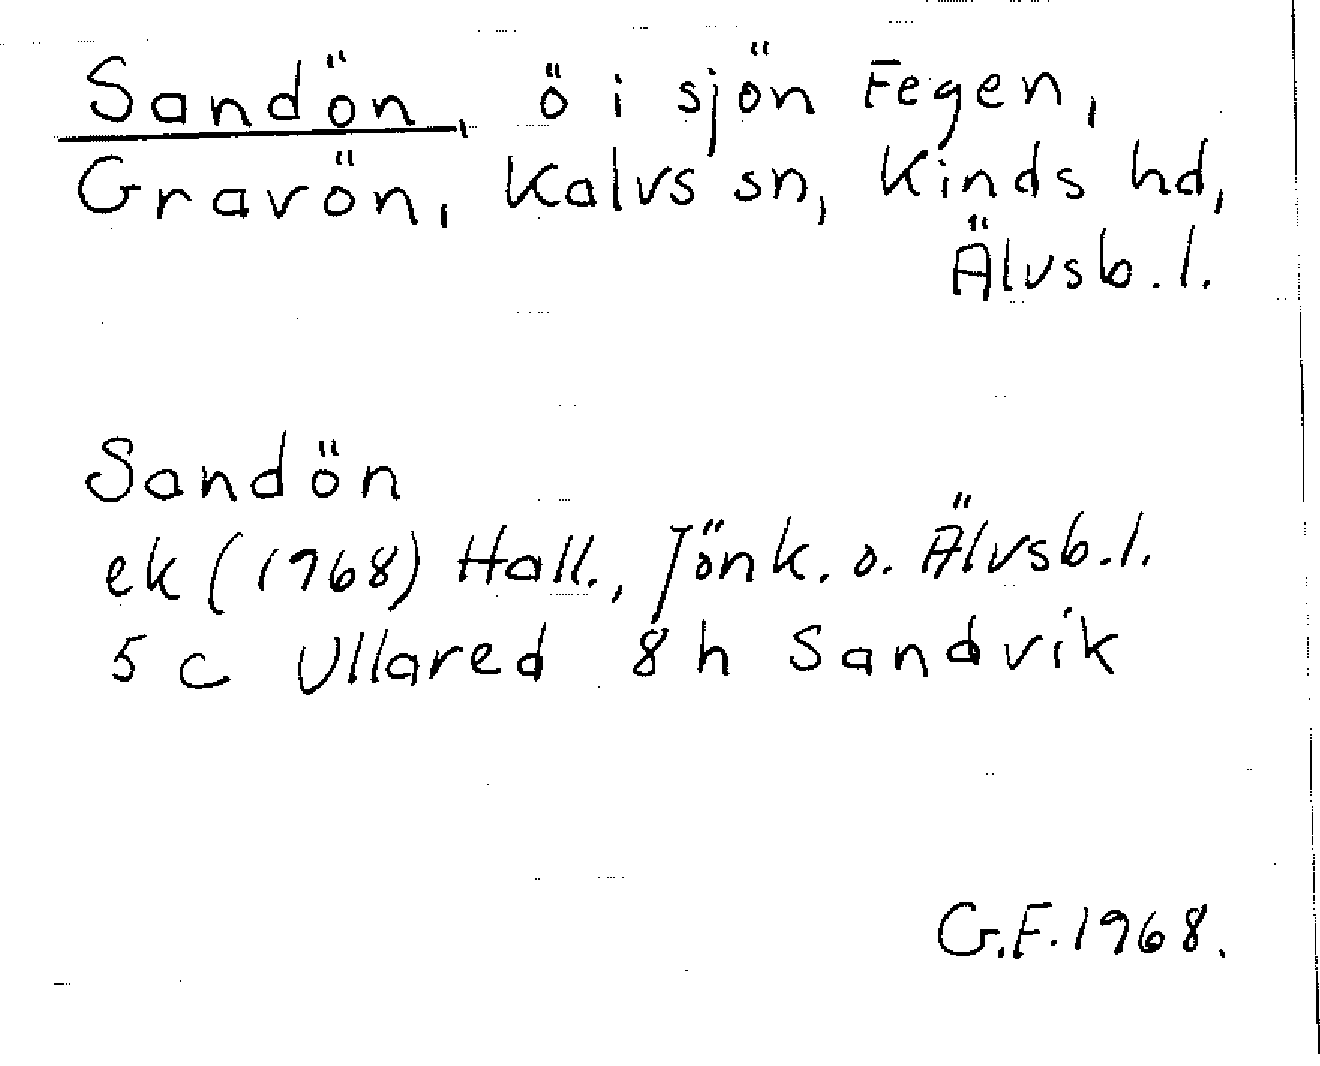 Sandön, ö i sjön Fegen,
Gravön, Kalvs sn, Kinds hd,
Älvsb. l.
Sandön
ek (1968) Hall., Jönk. o. Älvsb. l.
5 c Ullared 8 h Sandvik
G.F. 1968.